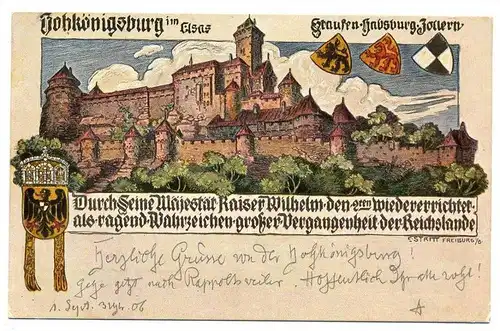 Hohkönigsburg im Elsas
Staufen · Habsburg · Zollern
Durch Seine Majestät Kaiser Wilhelm den 2ten wiedererrichtet
als ragend Wahrzeichen großer Vergangenheit der Reichslande
C. STRITT FREIBURG i/B
Herzliche Grüsse von der Hohkönigsburg!
Gehe jetzt nach Rappoltsweiler. Hoffentlich Ihr alle wohl!
1. Sept. 06
A